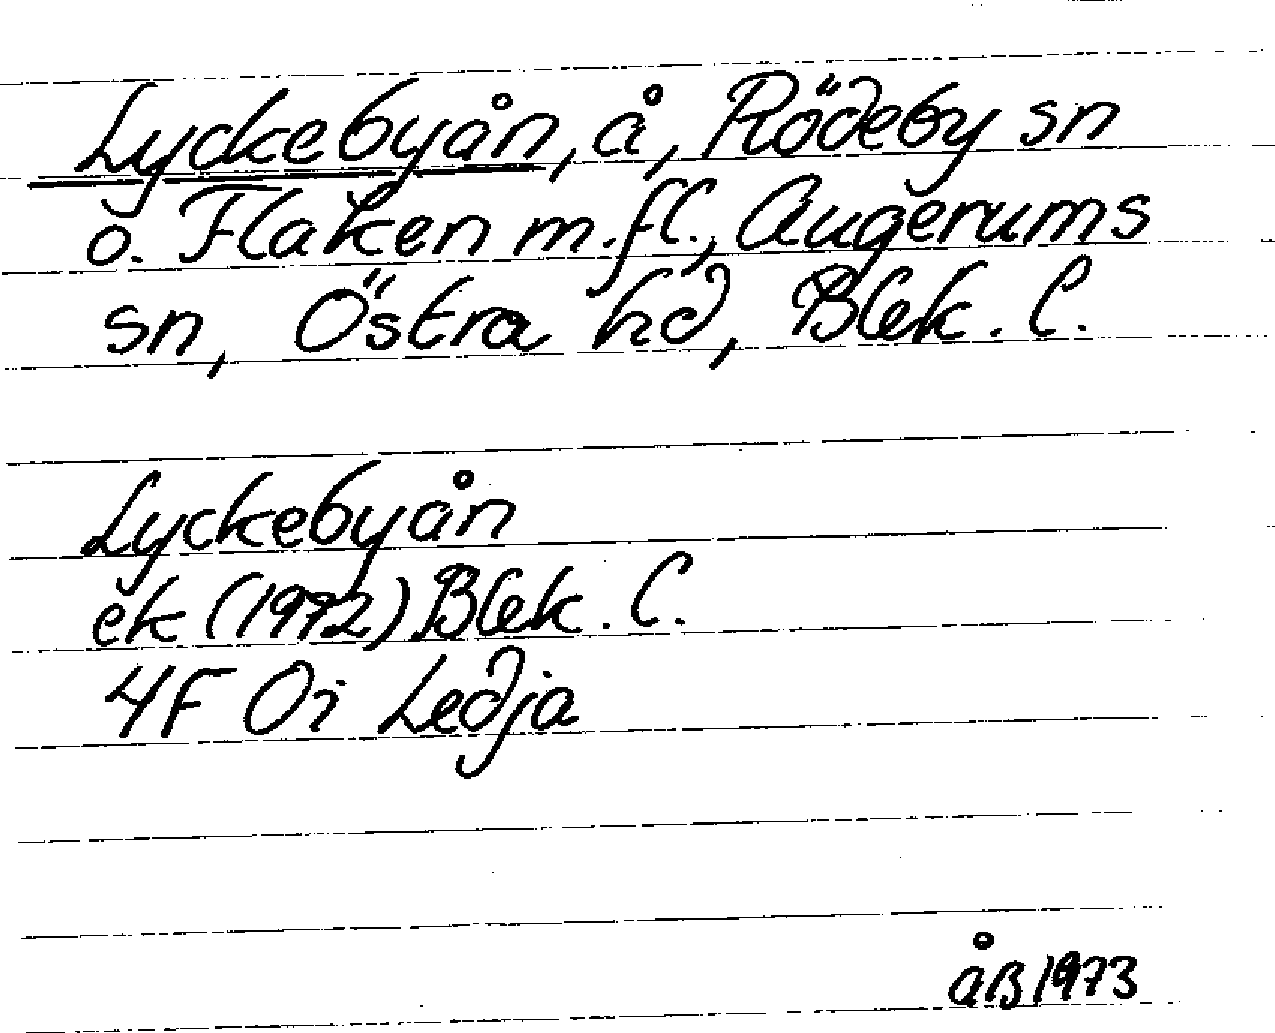 Lyckebyån, å, Rödeby sn
o. Flaken m.fl., Augerums
sn, Östra hd, Blek. l.
Lyckebyån
ek (1972) Blek. l.
4F 0i Ledja
åB 1973